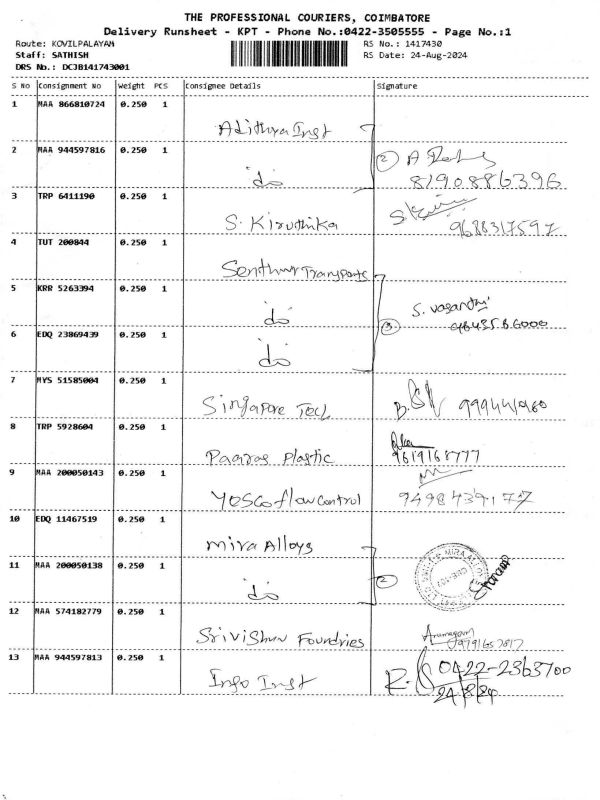 THE PROFESSIONAL COURIERS, COIMBATORE
Delivery Runsheet - KPT - Phone No.:0422-3505555 - Page No.:1
Route: KOVILPALAYAM RS No.: 1417430
Staff: SATHISH RS Date: 24-Aug-2024
DRS No.: DCJB141743001
S No Consignment No Weight PCS Consignee Details Signature
1 MAA 866810724 0.250 1
Adithya Inst
2 MAA 944597816 0.250 1 2 A
do 8190886396
3 TRP 6411190 0.250 1 S
S. Kiruthika 9688317597
4 TUT 200844 0.250 1
Senthur Transports
5 KRR 5263394 0.250 1 S. Vasanthi
do
6 EDQ 23869439 0.250 1 3
do
7 MYS 51585004 0.250 1
Singapore Tech B.
8 TRP 5928604 0.250 1
Paaras Plastic 9619168777
9 MAA 200050143 0.250 1
Yosco flow control 9498439177
10 EDQ 11467519 0.250 1
Mira Alloys
11 MAA 200050138 0.250 1 2
do
12 MAA 574182779 0.250 1 Arumugam
Srivishnu Foundries
13 MAA 944597813 0.250 1 0422-2363700
Info Inst 24/8/24